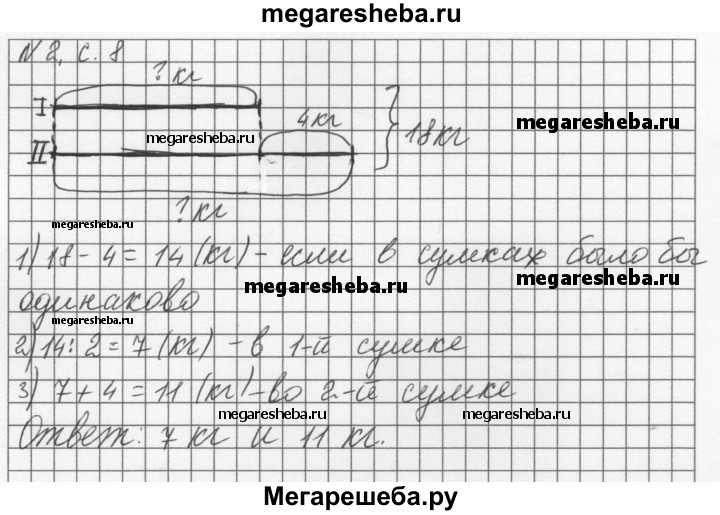 megaresheba.ru
N 2, с. 8
? кг
I
4 кг
megaresheba.ru
megaresheba.ru
18 кг
II
? кг
megaresheba.ru
1) 18 - 4 = 14 (кг) - если в сумках было бы
megaresheba.ru
megaresheba.ru
одинаково
megaresheba.ru
2) 14 : 2 = 7 (кг) - в 1-й сумке
3) 7 + 4 = 11 (кг) - во 2-й сумке
megaresheba.ru
megaresheba.ru
Ответ: 7 кг и 11 кг.
Мегарешеба.ру